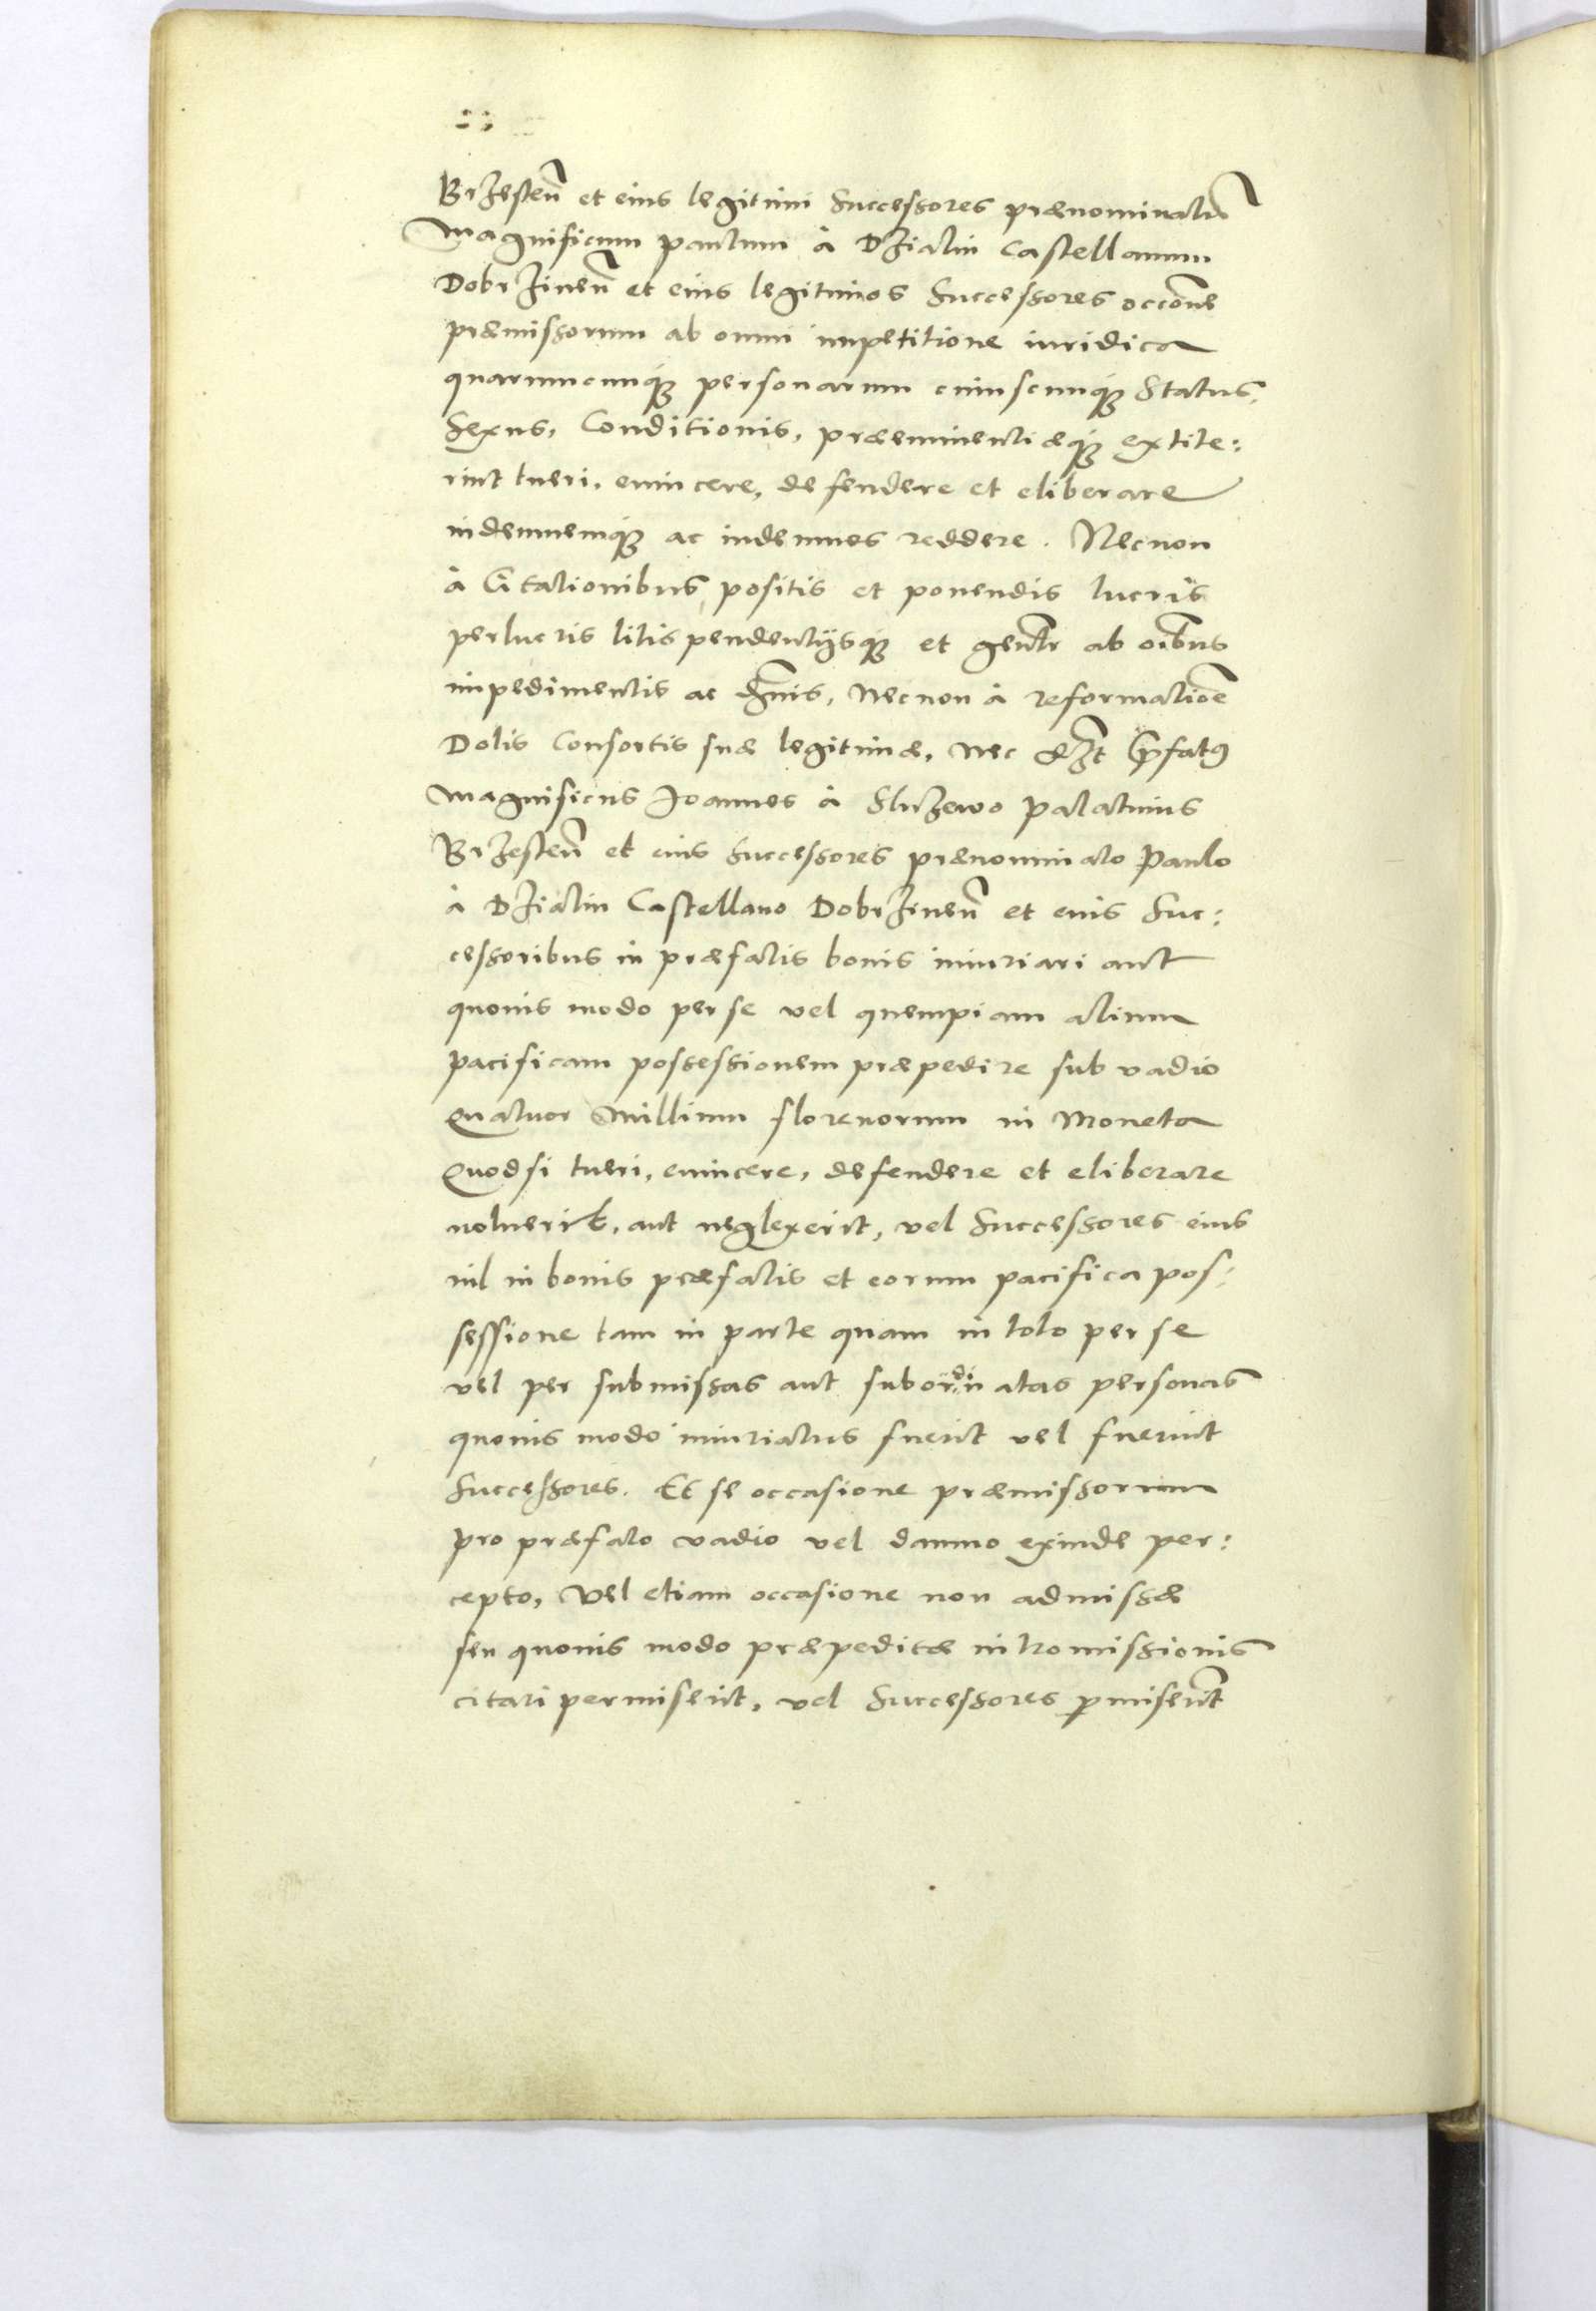 Brzesteñ et eius legitimi Successores prænominatũ
Magnificum paulum à Dzialin Castellanum
Dobrzineñ et eius legitimos Successores occõne
præmissorum ab omni impetitione iuridica
quarumcunq́ꝫ personarum cuiuscunq́ꝫ Status,
Sexus, Conditionis, præeminentiæq́ꝫ extite:
rint tueri, euincere, defendere et eliberare
indemnemq́ꝫ ac indemnes reddere. Necnon
à Citationibus positis et ponendis lucris
perlucris litis pendentijsq́ꝫ et gen̄lr ab oĩbus
impedimentis ac dãnis, Necnon à reformatioẽ
Dotis Consortis suæ legitimæ, Nec prefatꝰ
Magnificus Joannes à Sluzewo Palatinus
Brzesteñ et eius Successores prænominato Paulo
à Dzialin Castellano Dobrzineñ et eius Suc:
cessoribus in præfatis bonis iniuriari aut
quouis modo per se vel quempiam alium
pacificam possessionem præpedire sub vadio
Quatuor Millium florenorum in Moneta
Quodsi tueri, euincere, defendere et eliberare
noluerit, aut neglexerit, vel Successores eius
nil in bonis præfatis et eorum pacifica pos:
sessione tam in parte quam in toto per se
vel per submissas aut subordinatas personas
quouis modo iniuriatus fuerit vel fuerint
Successores. Et se occasione præmissorum
pro præfato vadio vel damno exinde per:
cepto, Vel etiam occasione non admissæ
seu quouis modo præpeditæ intromissionis
citari permiserit, vel Successores ꝑmiserĩt